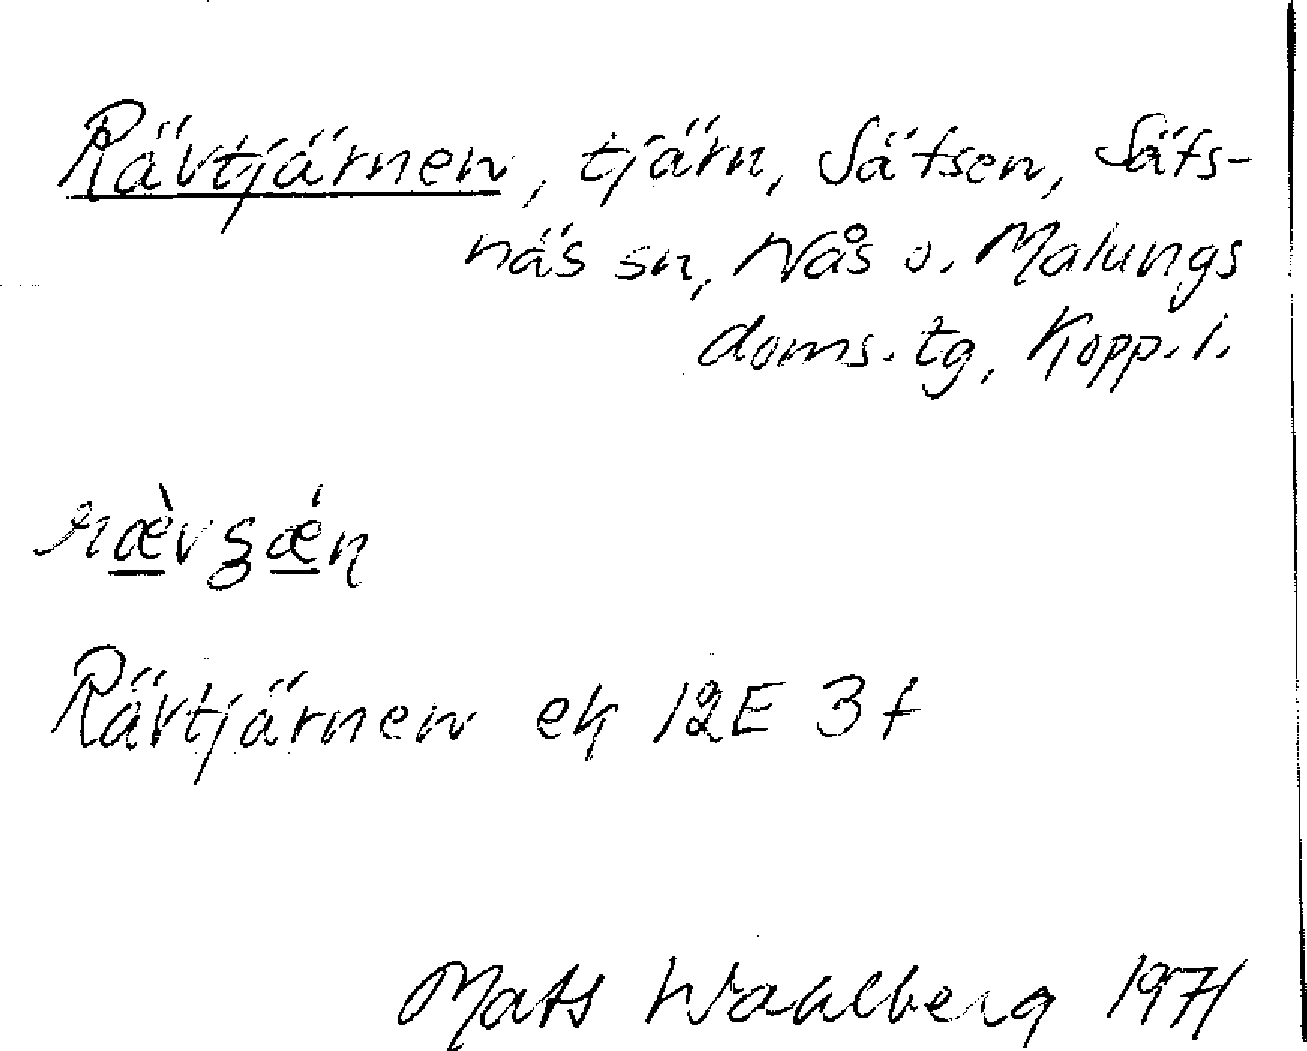 Rävtjärnen, tjärn, Sätsen, Säfs-
näs sn, Nås o. Malungs
doms. tg, Kopp. l.
Rävtjärnen ek 12E 3f
Mats Wahlberg 1971